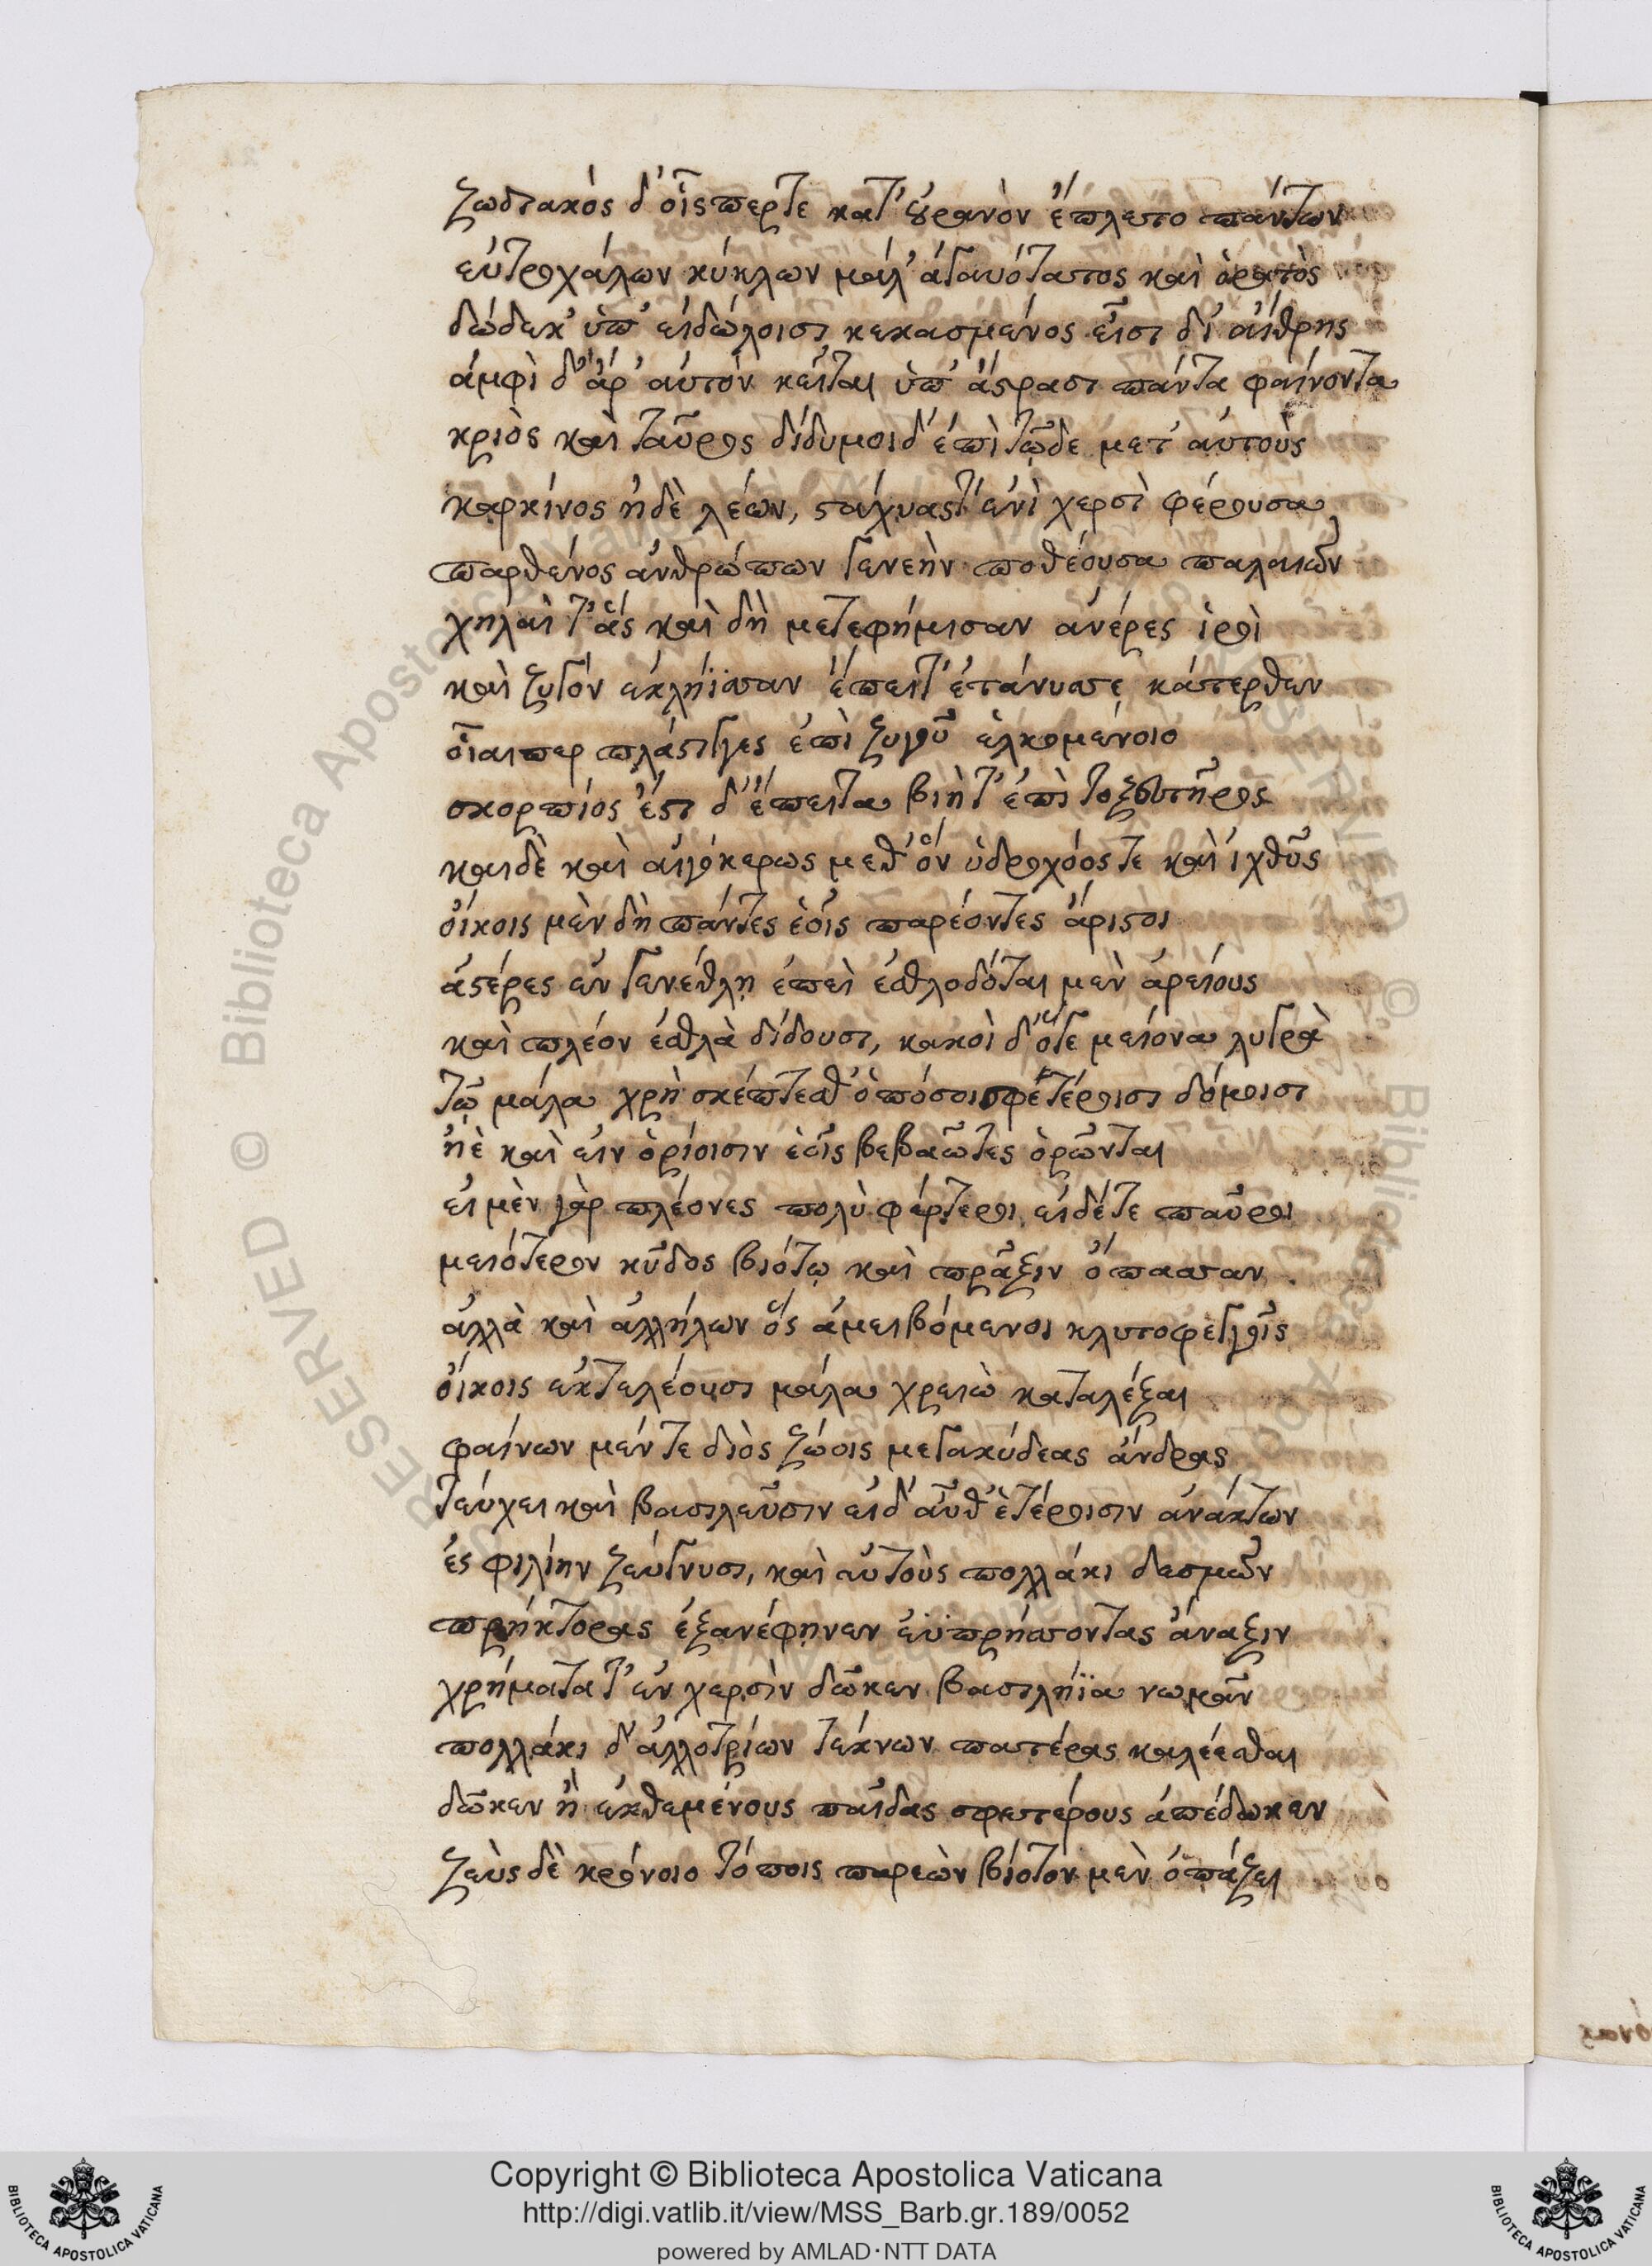 ζωδιακὸς δ' οἷς περ τε κατ' οὐρανὸν ἔπλετο πάντων
εὐτροχάλων κύκλων μάλ' ἀγαυότατος καὶ ὁρατὸς
δώδεκ' ὑπ' εἰδώλοισι κεκασμένος εἶσι δι' αἴθρης
ἀμφὶ δ' ἄρ' αὐτὸν κεῖται ὑπ' ἄστρασι πάντα φαίνοντα
κριὸς καὶ ταῦρος δίδυμοι δ' ἐπὶ τῷδε μετ' αὐτοὺς
καρκίνος ἠδὲ λέων, στάχυας τ' ἐνὶ χερσὶ φέρουσα
παρθένος ἀνθρώπων γενεὴν ποθέουσα παλαιῶν
χηλαὶ τ' ἃς καὶ δὴ μετεφήμισαν ἀνέρες ἱροὶ
καὶ ζυγὸν ἐκλήϊσαν ἔπειτ' ἐτάνυσε κάτερθεν
οἷαι περ πλάστιγγες ἐπὶ ζυγοῦ ἑλκομένοιο
σκορπίος ἔστι δ' ἔπειτα βιὴ τ' ἐπὶ τοξευτῆρος
και δὲ καὶ αἰγόκερως μεθ' ὃν ὑδροχόος τε καὶ ἰχθῦς
οἴκοις μὲν δὴ πάντες ἑοῖς παρέοντες ἄριστοι
ἀστέρες ἐν γενέθλῃ ἐπεὶ ἐσθλοδόται μὲν ἀρείους
καὶ πλέον ἐσθλὰ δίδουσι, κακοὶ δ' ὅγε μείονα λυγρὰ
τῷ μάλα χρὴ σκέπτεσθ' ὁπόσοι σφετέροισι δόμοισι
ἠὲ καὶ εἰν ὁρίοισιν ἑοῖς βεβαῶτες ὁρῶνται
εἰ μὲν γὰρ πλέονες πολὺ φέρτεροι, εἰ δέ τε παῦροι
μειότερον κῦδος βιότῳ καὶ πρᾶξιν ὄπασσαν
ἀλλὰ καὶ ἀλλήλων ὅς ἀμειβόμενοι κλυτοφεγγοῖς
οἴκοις ἐκτελέουσι μάλα χρειὼ καταλέξαι
φαίνων μέν τε διὸς ζώοις μεγακύδεας ἄνδρας
τεύχει καὶ βασιλεῦσιν εἰδ' αὖθ' ἑτέροισιν ἀνάκτων
ἐς φιλίην ζεύγνυσι, καὶ αὐτοὺς πολλάκι δεσμῶν
πρήκτορας ἐξανέφηνεν ἐϋπρήσσοντας ἄναξιν
χρήματα τ' ἐν χερσὶν δῶκεν βασιλήϊα νωμᾶν
πολλάκι δ' ἀλλοτρίων τέκνων πατέρας καλέεσθαι
δῶκεν ἢ ἐκθεμένους παῖδας σφετέρους ἀπέδωκεν
ζεὺς δὲ κρόνοιο τόποις παρεὼν βίοτον μὲν ὀπάζει
Copyright © Biblioteca Apostolica Vaticana
http://digi.vatlib.it/view/MSS_Barb.gr.189/0052
powered by AMLAD·NTT DATA